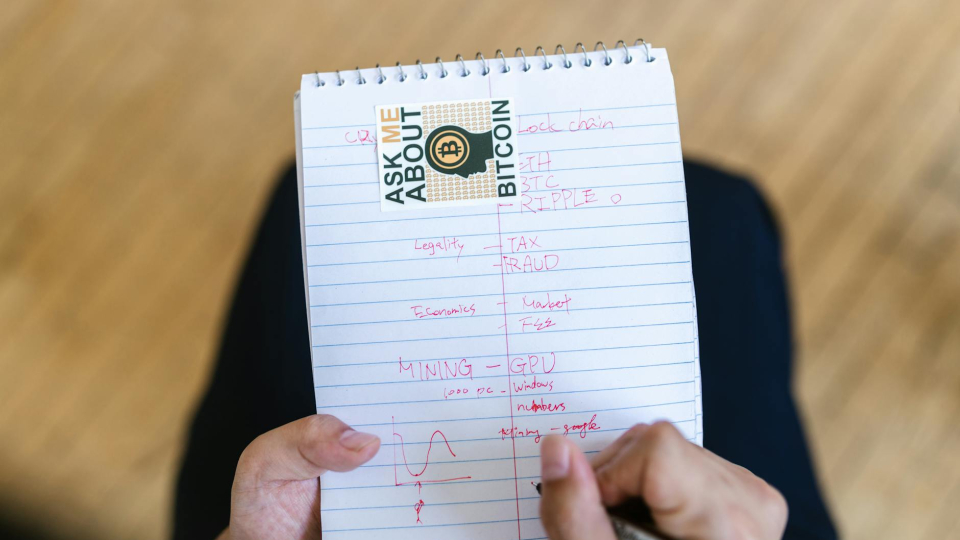 ASK ME
ABOUT
BITCOIN
Lock chain
ETH
BTC
RIPPLE
Legality - TAX
- FRAUD
Economics - Market
- Fee
MINING - GPU
1,000 pc - Windows
numbers
Mining - google